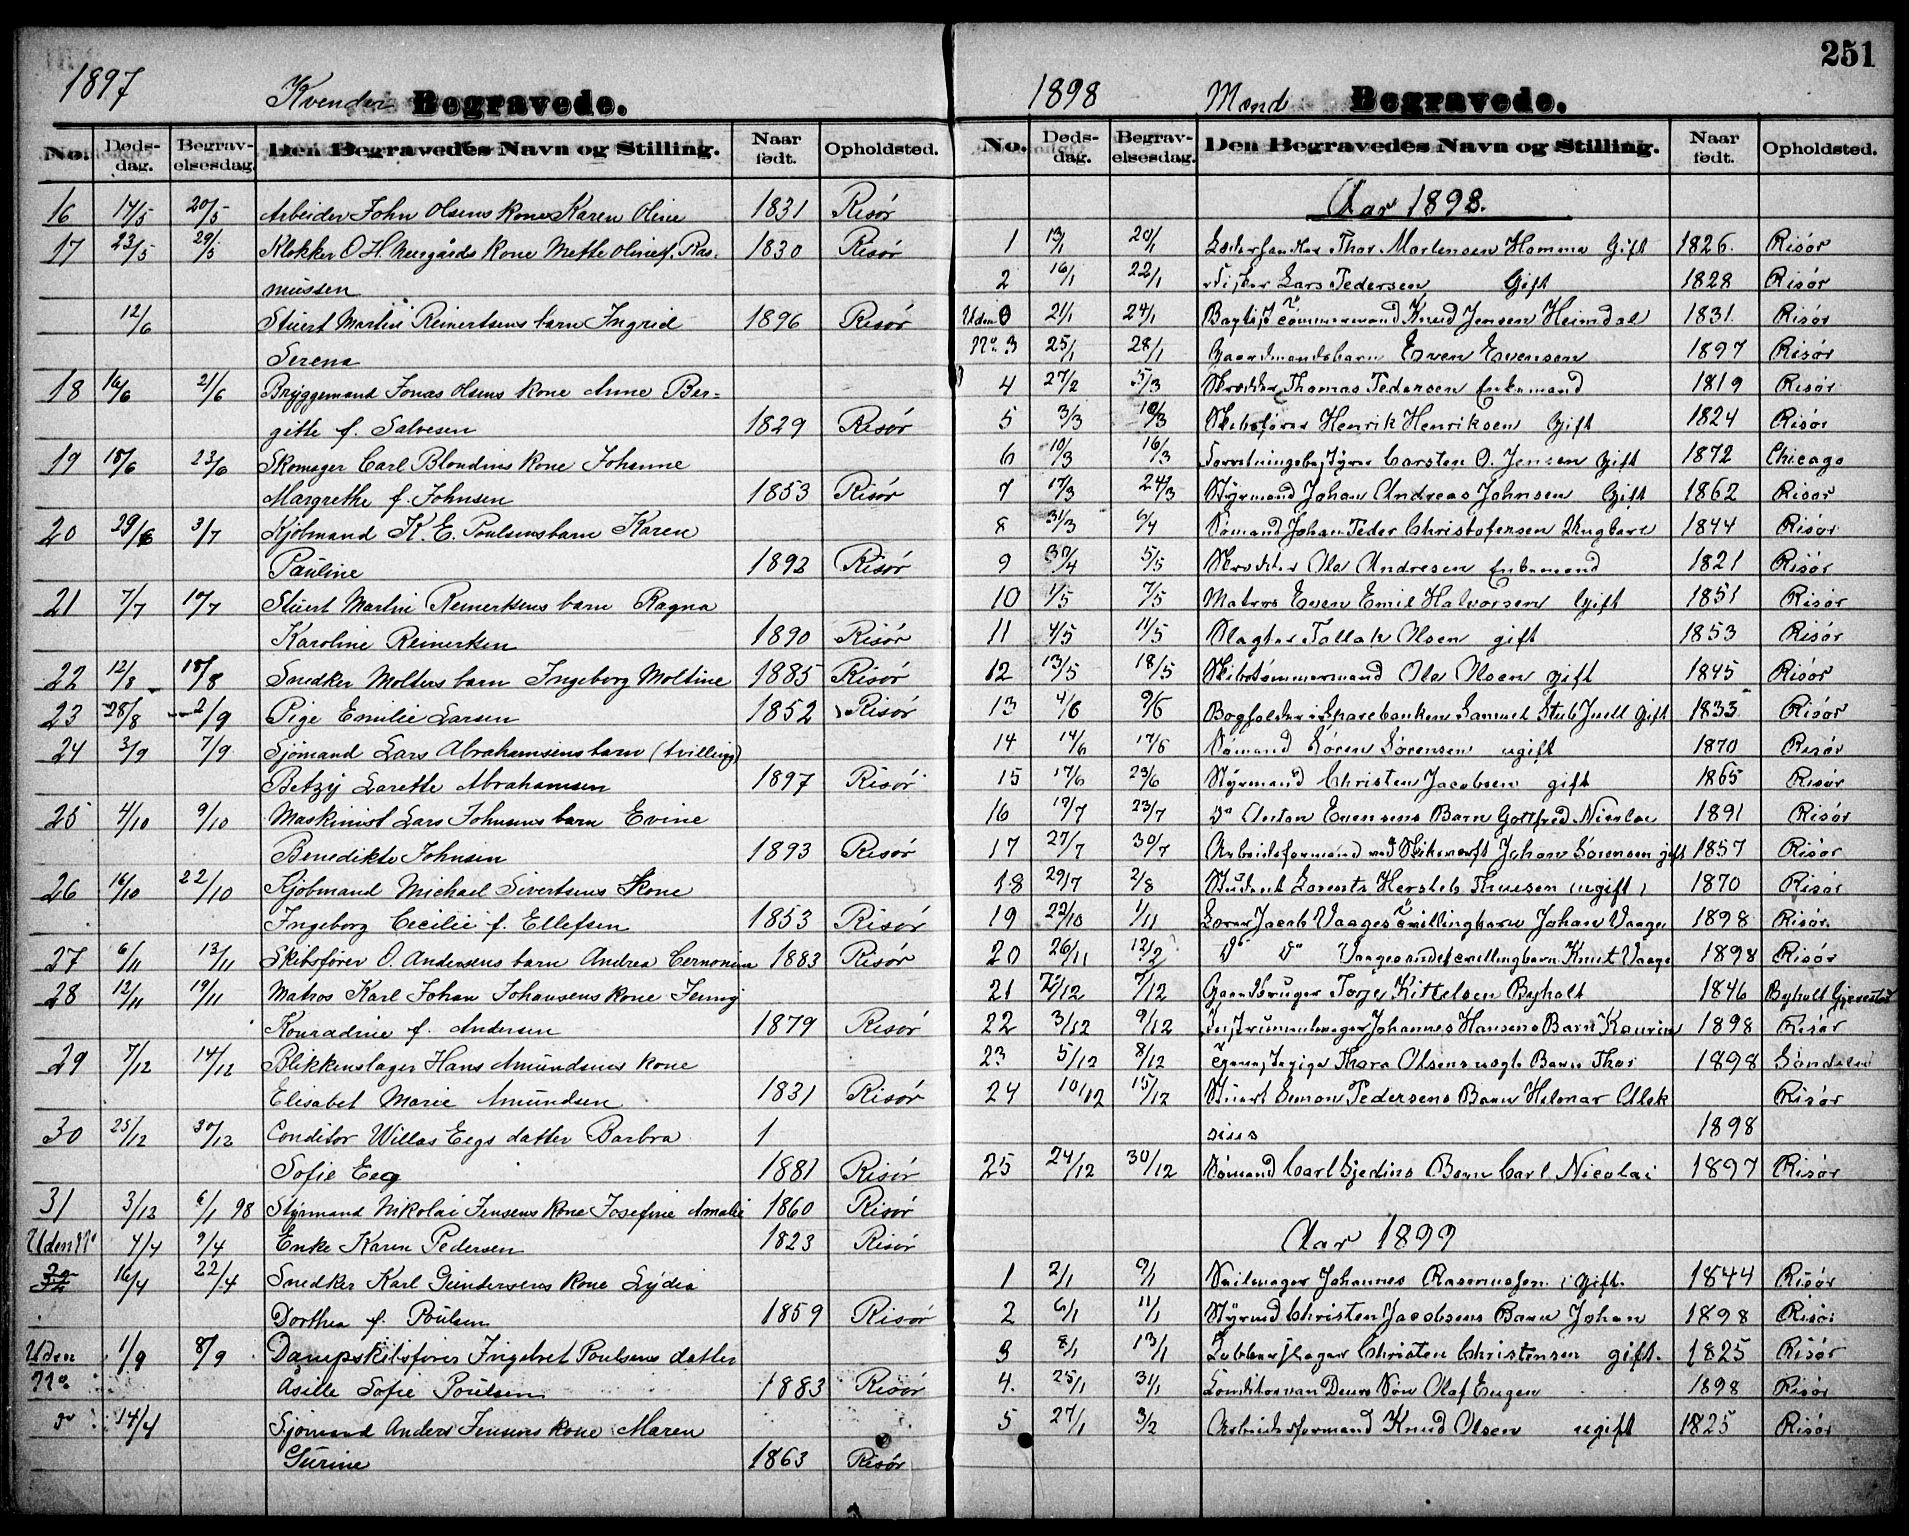 251
1897 Kvender Begravede.
No. Døds-dag. Begrav-elsesdag. Den Begravedes Navn og Stilling. Naar født. Opholdsted.
16 14/5 20/5 Arbeider John Olsens kone Karen Oline 1831 Risør
17 23/5 29/5 Klokker O. H. kone Mette Oline f. Ras- 1830 Risør
mussen
12/6 Stuert Martin Reinertsens barn Ingrid 1896 Risør
Serena
18 16/6 21/6 Bryggemand Jonas Olsens kone Anne Ber-
gitte f. Salvesen 1829 Risør
19 18/6 23/6 Skomager Carl Blondins kone Johanne
Margrethe f. Johnsen 1853 Risør
20 29/6 3/7 Kjøbmand K. E. Poulsens barn Karen
Pauline 1892 Risør
21 7/7 Stuert Martin Reinertsens barn Ragna
Karoline Reinertsen 1890 Risør
22 12/8 18/8 Snedker Moltens barn Ingeborg Moltine 1885 Risør
23 28/8 2/9 Pige Emilie Larsen 1852 Risør
24 3/9 7/9 Sjømand Lars Abrahamsens barn (tvilling)
Betzy Larette Abrahamsen 1897 Risør
25 4/10 9/10 Maskinist Lars Johnsens barn Evine
Benedikte Johnsen 1893 Risør
26 16/10 22/10 Kjøbmand Michael Sivertsens Kone
Ingeborg Cecilie f. Ellefsen 1853 Risør
27 6/11 13/11 Skibsfører O. Andersens barn Andrea 1883 Risør
28 12/11 19/11 Matros Karl Johan Johansens kone Jenny
Konradine f. Andersen 1879 Risør
29 7/12 14/12 Blikkenslager Hans Amundsens kone
Elisabet Marie Amundsen 1831 Risør
30 25/12 30/12 Conditor Willas Eegs datter Barbra 1
Sofie Eeg 1881 Risør
31 3/12 6/1 98 Styrmand Nikolai Jensens kone Josefine Amalie 1860 Risør
Uden No 4/4 9/4 Enke Karen Pedersen 1823 Risør
16/4 22/4 Snedker Karl Gundersens kone Lydia
Dorthea f. Poulsen 1859 Risør
Uden 1/9 8/9 Dampskibsfører Ingebret Poulsens datter
No. Åsille Sofie Poulsen 1883 Risør
do 14/4 Sjømand Anders Jensens kone Maren
Gurine 1863 Risør
1898 Mænd Begravede.
No. Døds-dag. Begrav-elsesdag. Den Begravedes Navn og Stilling. Naar født. Opholdsted.
Aar 1898.
1 13/1 20/1 Thor Mortensen Hamma Gift 1826. Risør
2 16/1 22/1 Fisker Lars Pedersen Gift 1828 Risør
Uden 21/1 24/1 Baptist Tömmermand Knud Jensen Heimdal 1831. Risør
No. 3 25/1 28/1 Gaardmandsbarn Even Evensen 1897 Risör
4 27/2 5/3 Skrædder Thomas Pedersen Enkemand 1819 Risør
5 3/3 10/3 Skibsfører Henrik Henriksen Gift 1824 Risør
6 10/3 16/3 Forretningsbestyrer Carsten O. Jensen Gift 1872 Chicago
7 17/3 24/3 Styrmand Johan Andreas Johnsen Gift 1862 Risør
8 31/3 6/4 Sømand Johan Peder Christofersen Ungkarl 1844 Risør
9 30/4 5/5 Skrædder Ole Andresen Enkemand 1821 Risör
10 1/5 7/5 Matros Even Emil Halvorsen Gift 1851 Risør
11 4/5 11/5 Slagter Tallak Olsen gift 1853 Risør
12 13/5 18/5 Skibstömmermand Ole Olsen gift 1845 Risør
13 4/6 9/6 Bogholder i Sparebanken Samuel Stub Juell Gift 1833 Risør
14 14/6 17/6 Sømand Sören Sørensen ugift 1870 Risør
15 17/6 23/6 Styrmand Christen Jacobsen gift 1865 Risør
16 19/7 23/7 Do Anton Evensens Barn Gottfred Nicolai 1891 Risør
17 27/7 30/7 Arbeidsformand ved Skibsværft Johan Sørensen gift 1857 Risør
18 29/7 2/8 Student Lorentz Hersleb Thuesen (ugift) 1870 Risør
19 22/10 1/11 Jacob Vaages Tvillingbarn Johan Vaage 1898 Risør.
20 26/11 12/2 Do Do Vaages andet tvillingbarn Knut Vaage 1898 Risör
21 7/12 Gaardbruger Torje Kittelsen Byholt 1846 Byholt Gjerestad
22 3/12 9/12 Instrumentmager Johannes Hansens Barn Kaurin 1898 Risør
23 5/12 8/12 Tjenestepige Thora Olsens uægte Barn Thor 1898 Söndeled
24 10/12 15/12 Stuert Simon Pedersens Barn Hilmar Alek Risør
sius 1898
25 24/12 30/12 Sömand Carl Gjedins Barn Carl Nicolai 1897 Risør
Aar 1899
1 2/1 9/1 Seilmager Johannes Rasmussen, gift. 1844 Risør
2 6/1 11/1 Styrmd Christen Jacobsens Barn Johan 1898 Risör
3 8/1 13/1 Kobberslager Christen Christensen gift. 1825 Risør
4. 25/1 31/1 Conditor van Deurs Søn Olaf Eugen 1898 Risør
5 27/1 3/2 Arbeidsformand Knud Olsen ugift 1825 Risør